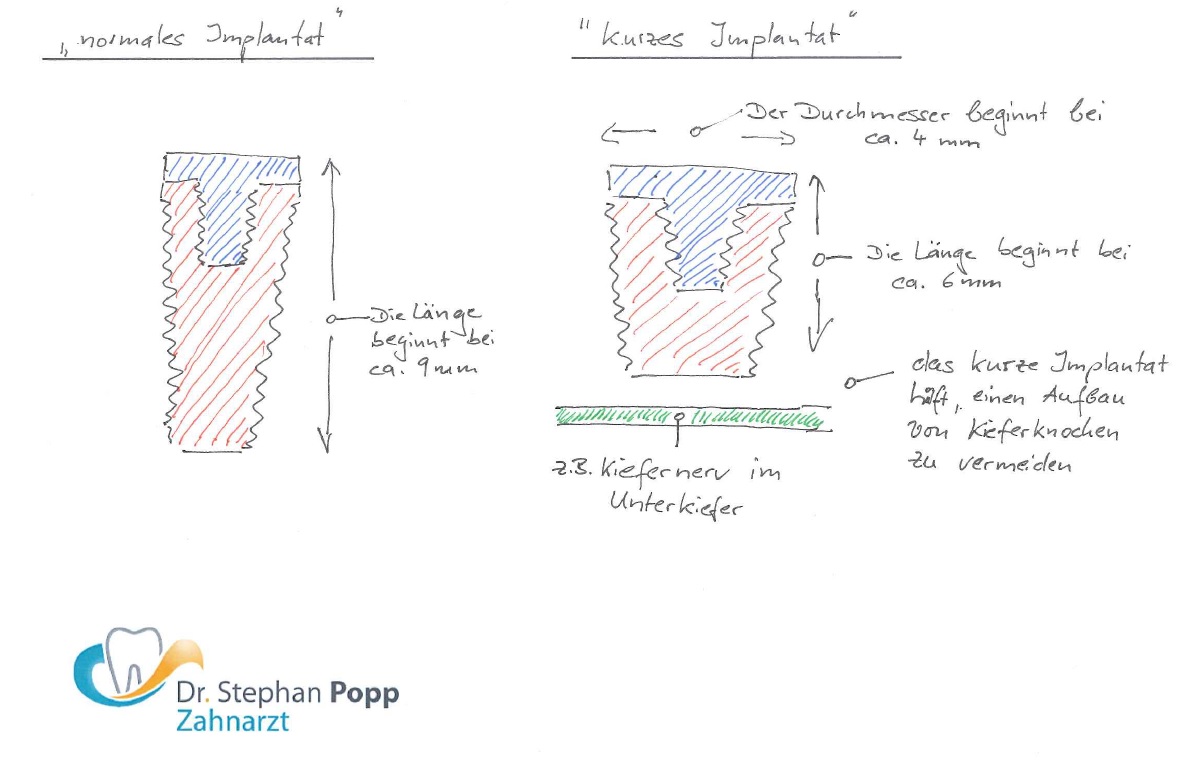 „normales Implantat“
"kurzes Implantat"
Der Durchmesser beginnt bei
ca. 4 mm
Die Länge beginnt bei
ca. 6 mm
Die Länge
beginnt bei
ca. 9 mm
das kurze Implantat
hilft, einen Aufbau
von Kieferknochen
zu vermeiden
z.B. Kiefernerv im
Unterkiefer
Dr. Stephan Popp
Zahnarzt